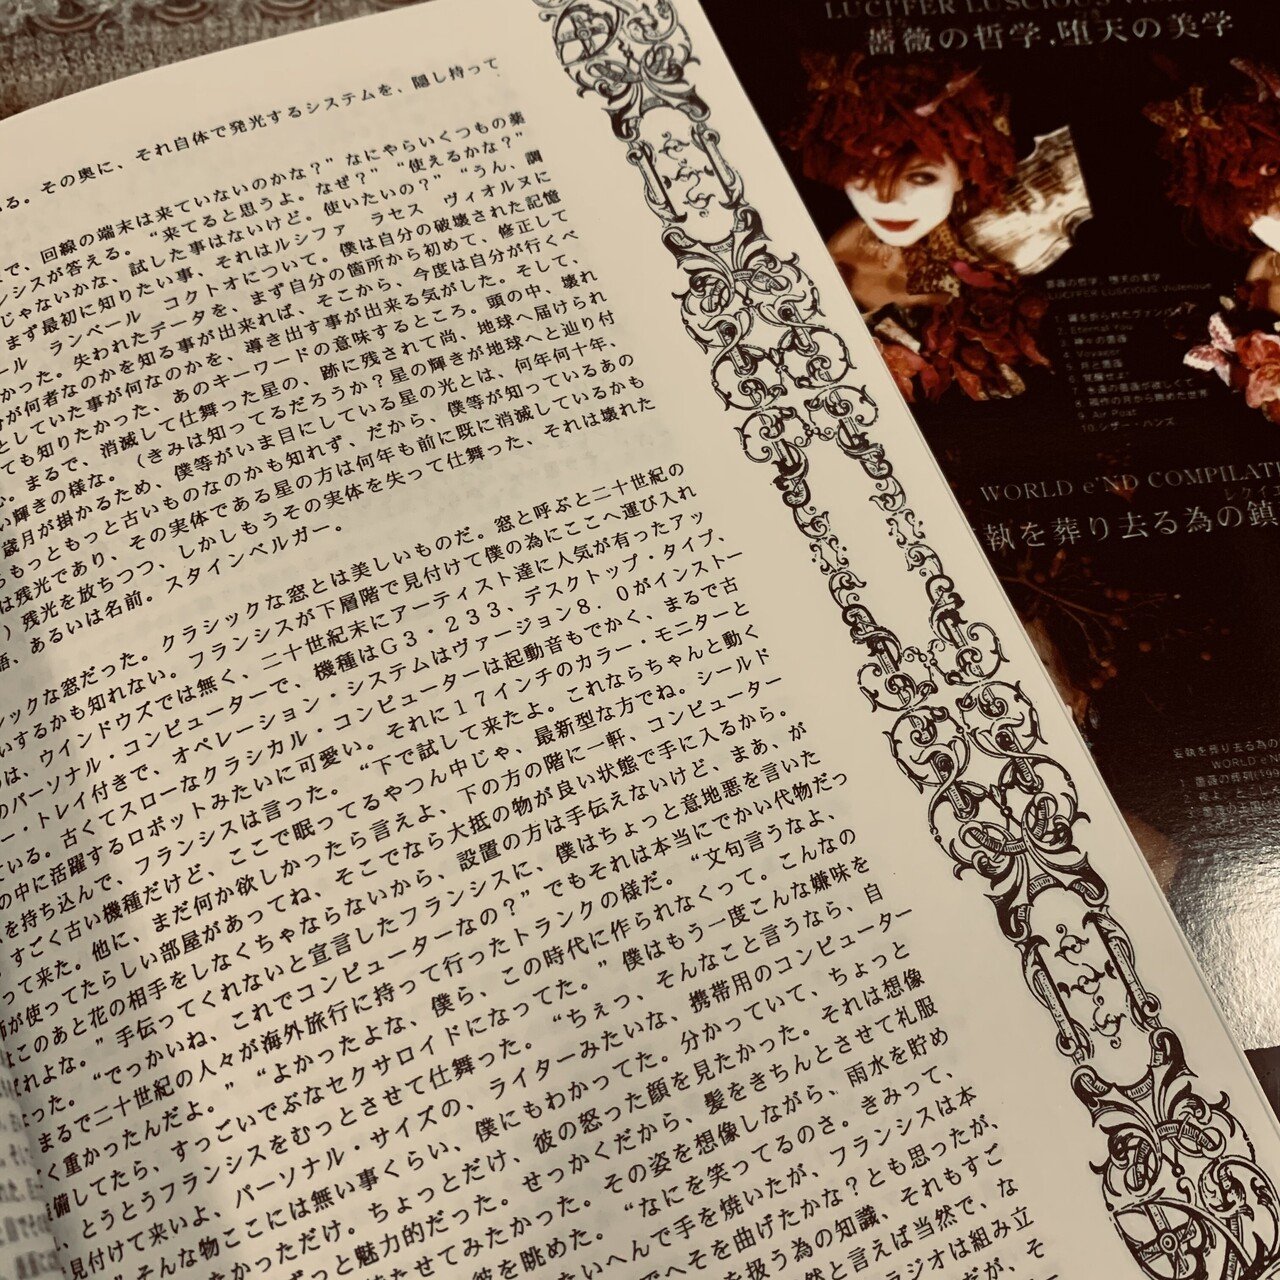 る。その奥に、それ自体で発光するシステムを、隠し持って
で、回線の端末は来ていないのかな？”なにやらいくつもの薬
ンシスが答える。“来てると思うよ。なぜ？”“使えるかな？”
じゃないかな、試した事はないけど。使いたいの？”“うん、調
まず最初に知りたい事、それはルシファ　ラセス　ヴィオルヌに
ール　ランベール　コクトオについて。僕は自分の破壊された記憶
かった。失われたデータを、まず自分の箇所から初めて、修正して
分が何者なのかを知る事が出来れば、そこから、今度は自分が行くべ
としていた事が何なのかを、導き出す事が出来る気がした。そして、
ても知りたかった、あのキーワードの意味するところ。頭の中、壊れ
む。まるで、消滅して仕舞った星の、跡に残されて尚、地球へ届けられ
い輝きの様な。（きみは知ってるだろうか？星の輝きが地球へと辿り付
歳月が掛かるため、僕等がいま目にしている星の光とは、何年何十年、
らもっともっと古いものなのかも知れず、だから、僕等が知っているあの
は残光であり、その実体である星の方は何年も前に既に消滅しているかも
）残光を放ちつつ、しかしもうその実体を失って仕舞った、それは壊れた
語、あるいは名前。スタインベルガー。
シックな窓だった。クラシックな窓とは美しいものだ。窓と呼ぶと二十世紀の
いするかも知れない。フランシスが下層階で見付けて僕の為にここへ運び入れ
のは、ウインドウズでは無く、二十世紀末にアーティスト達に人気が有ったアッ
のパーソナル・コンピューターで、機種はＧ３・２３３、デスクトップ・タイプ、
ー・トレイ付きで、オペレーション・システムはヴァージョン８．０がインストー
ている。古くてスローなクラシカル・コンピューターは起動音もでかく、まるで古
の中に活躍するロボットみたいに可愛い。それに１７インチのカラー・モニターと
を持ち込んで、フランシスは言った。“下で試して来たよ。これならちゃんと動く
すごく古い機種だけど、ここで眠ってるやつん中じゃ、最新型な方でね。シールド
って来た。他に、まだ何か欲しかったら言えよ、下の方の階に一軒、コンピューター
師が使ってたらしい部屋があってね、そこでなら大抵の物が良い状態で手に入るから。
はこのあと花の相手をしなくちゃならないから、設置の方は手伝えないけど、まあ、が
ばれよな。”手伝ってくれないと宣言したフランシスに、僕はちょっと意地悪を言いた
なった。“でっかいね、これでコンピューターなの？”でもそれは本当にでかい代物だっ
まるで二十世紀の人々が海外旅行に持って行ったトランクの様だ。“文句言うなよ、
く重かったんだよ。”“よかったよな、僕ら、この時代に作られなくって。こんなの
備してたら、すっごいでぶなセクサロイドになってた。”僕はもう一度こんな嫌味を
、とうとうフランシスをむっとさせて仕舞った。“ちぇっ、そんなこと言うなら、自
見付けて来いよ、パーソナル・サイズの、ライターみたいな、携帯用のコンピューター
”そんな物ここには無い事くらい、僕にもわかってた。分かっていて、ちょっと
かっただけ。ちょっとだけ、彼の怒った顔を見たかった。それは想像
ずっと魅力的だった。せっかくだから、髪をきちんとさせて礼服
たせてみたかった。その姿を想像しながら、雨水を貯め
彼を眺めた。“なにを笑ってるのさ。きみって、
いへんで手を焼いたが、フランシスは本
でへそを曲げたかな？とも思ったが、
を扱う為の知識、それもすご
然と言えば当然で、な
ラジオは組み立
だが、そ
LUCIFER LUSCIOUS
薔薇の哲学,堕天の美学
薔薇の哲学、堕天の美学
LUCIFER LUSCIOUS Violenoue
2. Eternal You
3. 神々の薔薇
4. Voyager
5. 月と薔薇
9. Air Post
10.シザー・ハンズ
WORLD e'ND COMPILATI
執を葬り去る為の鎮
レクイ
妄執を葬り去る為の
WORLD e'ND